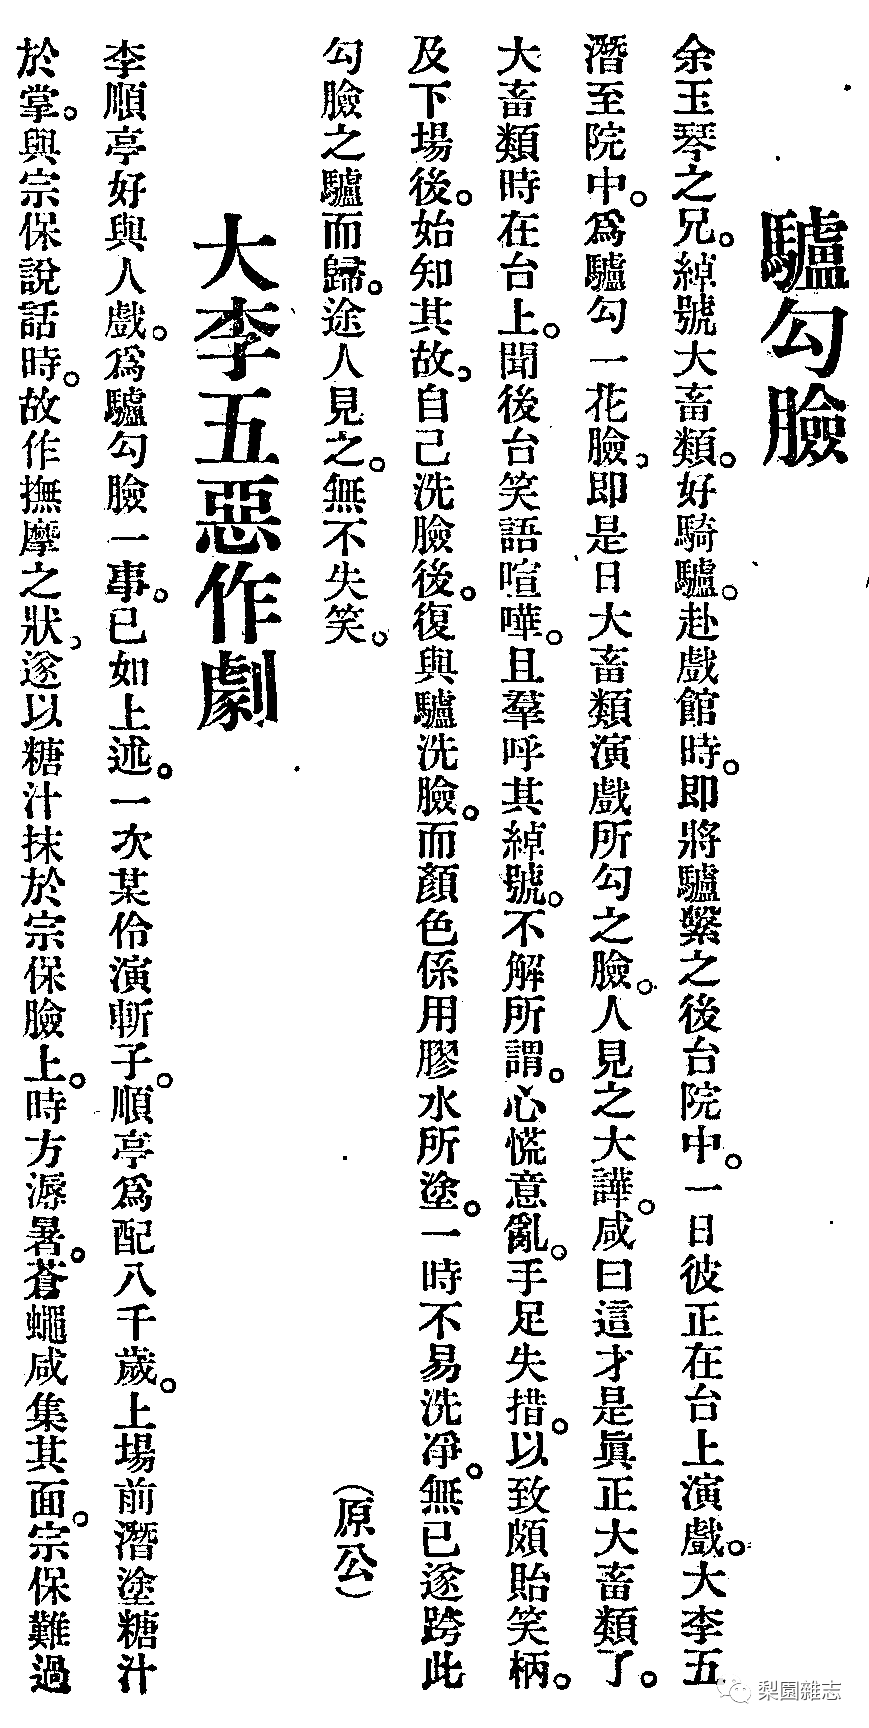 驢勾臉
余玉琴之兄。綽號大畜類。好騎驢。赴戲館時。即將驢繫之後台院中。一日彼正在台上演戲。大李五
潛至院中。爲驢勾一花臉。即是日大畜類演戲所勾之臉。人見之大譁。咸曰這才是眞正大畜類了。
大畜類時在台上。聞後台笑語喧嘩。且羣呼其綽號。不解所謂。心慌意亂。手足失措。以致頗貽笑柄。
及下場後。始知其故。自己洗臉後。復與驢洗臉。而顏色係用膠水所塗。一時不易洗淨。無已遂跨此
勾臉之驢而歸。途人見之。無不失笑。
（原公）
大李五惡作劇
李順亭好與人戲。爲驢勾臉一事。已如上述。一次某伶演斬子。順亭爲配八千歲。上場前潛塗糖汁
於掌。與宗保說話時。故作撫摩之狀。遂以糖汁抹於宗保臉上。時方溽暑。蒼蠅咸集其面。宗保難過
梨園雜志